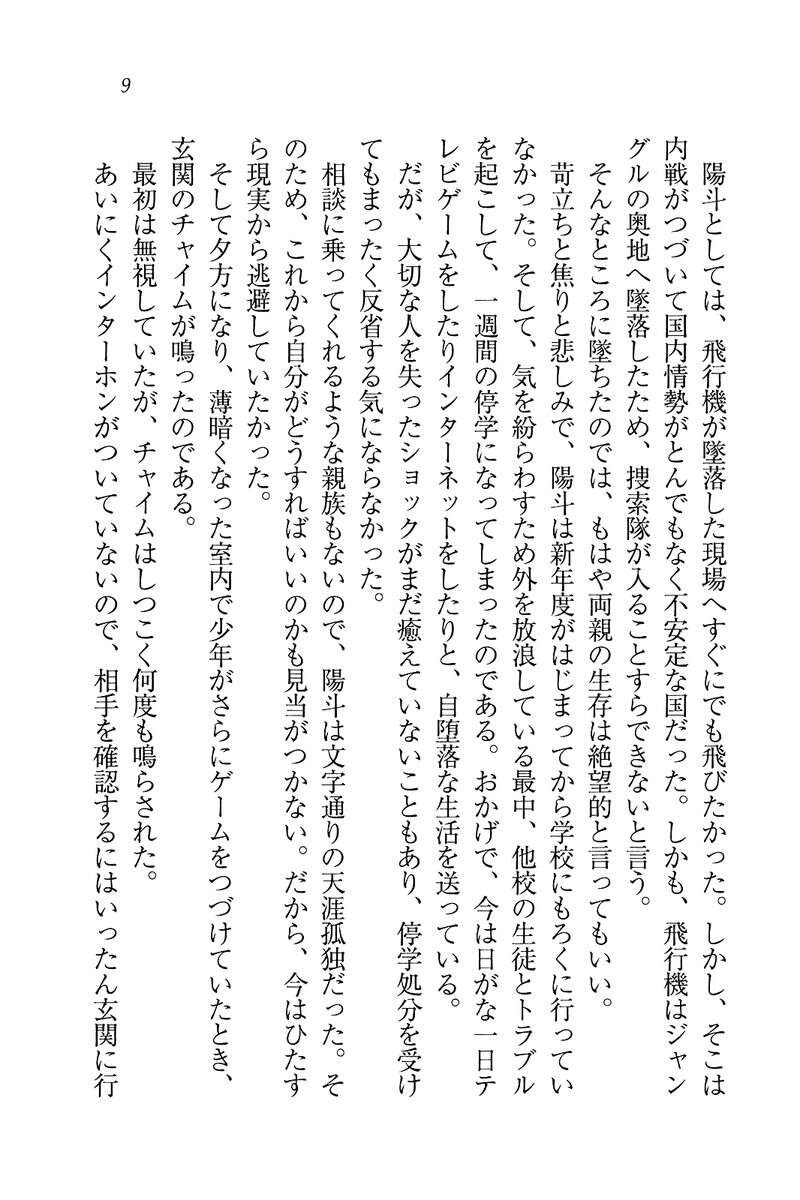 9
　陽斗としては、飛行機が墜落した現場へすぐにでも飛びたかった。しかし、そこは
内戦がつづいて国内情勢がとんでもなく不安定な国だった。しかも、飛行機はジャン
グルの奥地へ墜落したため、捜索隊が入ることすらできないと言う。
　そんなところに墜ちたのでは、もはや両親の生存は絶望的と言ってもいい。
　苛立ちと焦りと悲しみで、陽斗は新年度がはじまってから学校にもろくに行ってい
なかった。そして、気を紛らわすため外を放浪している最中、他校の生徒とトラブル
を起こして、一週間の停学になってしまったのである。おかげで、今は日がな一日テ
レビゲームをしたりインターネットをしたりと、自堕落な生活を送っている。
　だが、大切な人を失ったショックがまだ癒えていないこともあり、停学処分を受け
てもまったく反省する気にならなかった。
　相談に乗ってくれるような親族もないので、陽斗は文字通りの天涯孤独だった。そ
のため、これから自分がどうすればいいのかも見当がつかない。だから、今はひたす
ら現実から逃避していたかった。
　そして夕方になり、薄暗くなった室内で少年がさらにゲームをつづけていたとき、
玄関のチャイムが鳴ったのである。
　最初は無視していたが、チャイムはしつこく何度も鳴らされた。
　あいにくインターホンがついていないので、相手を確認するにはいったん玄関に行